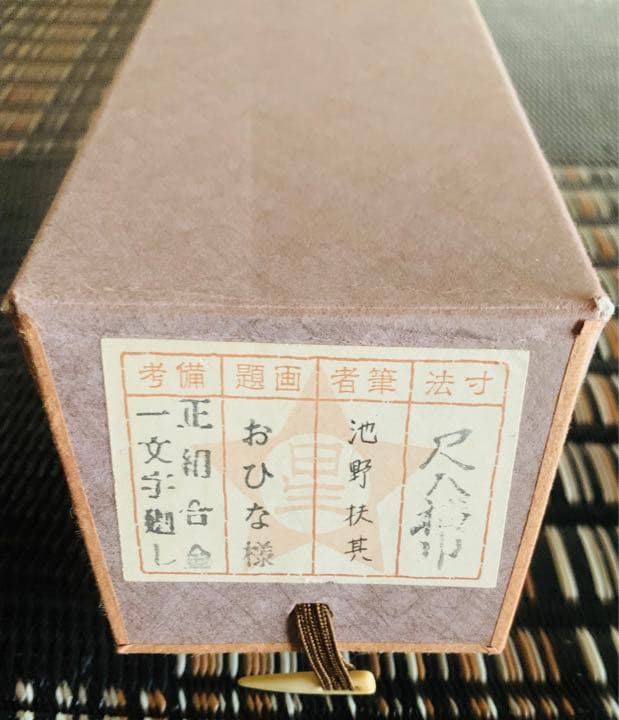 寸法
尺八横巾
筆者
池野扶其
画題
おひな様
備考
正絹合金
一文字廻し
星